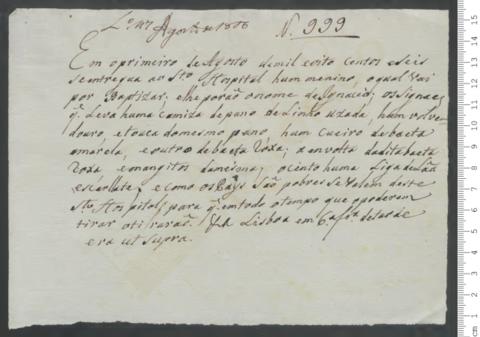 Lº 117 Agosto de 1806 N. 999
Em o primeiro de Agosto de mil e oito centos e seis
se entregua ao Stº Hospital hum menino, o qual vai
por Baptizar, e lhe porão o nome de Ignacio; os signaes
q. leva huma camiza de pano de Linho uzada, hum volve
douro, e touca do mesmo pano, hum cueiro de baeta
amarela, e outro de baeta Roxa; a envolta da dita baeta
Roxa, e mangitos da mesma, o cinto huma Liga de Lãa
escarlate, e como os Pays são pobres se valem deste
Stº Hospital, para q. em todo o tempo que o poderem
tirar o tirarão. Lisboa em 6ª frª de tarde
era ut supra.
cm 1 2 3 4 5 6 7 8 9 10 11 12 13 14 15